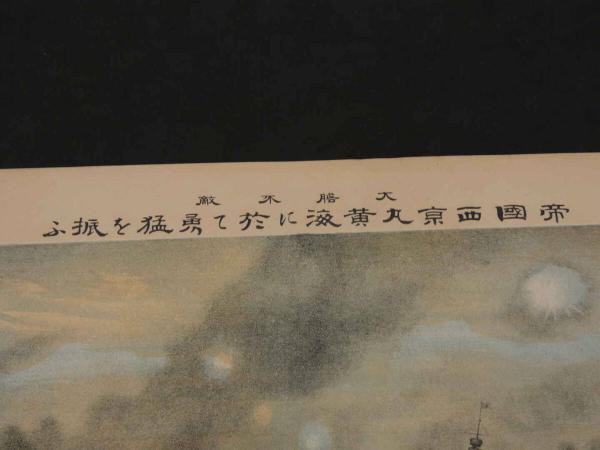 大膽不敵
帝國西京丸黄海に於て勇猛を振ふ